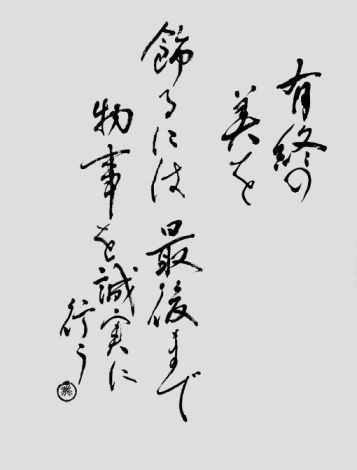 有終の
美を
飾るには 最後まで
物事を誠実に
行う